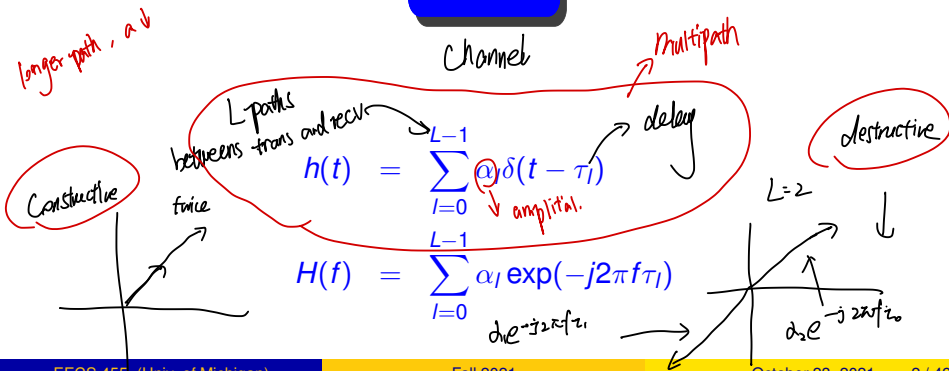 longer path, a ↓
Channel
multipath
L paths
betweens trans and recv
delay
destructive
Constructive
twice
h(t) = \sum_{l=0}^{L-1} α_l δ(t − τ_l)
amplital.
L=2
H(f) = \sum_{l=0}^{L-1} α_l exp(−j2πfτ_l)
α_1 e^{-j2πfτ_1}
α_2 e^{-j2πfτ_0}
EECS 455 (Univ. of Michigan) Fall 2021 October 20, 2021